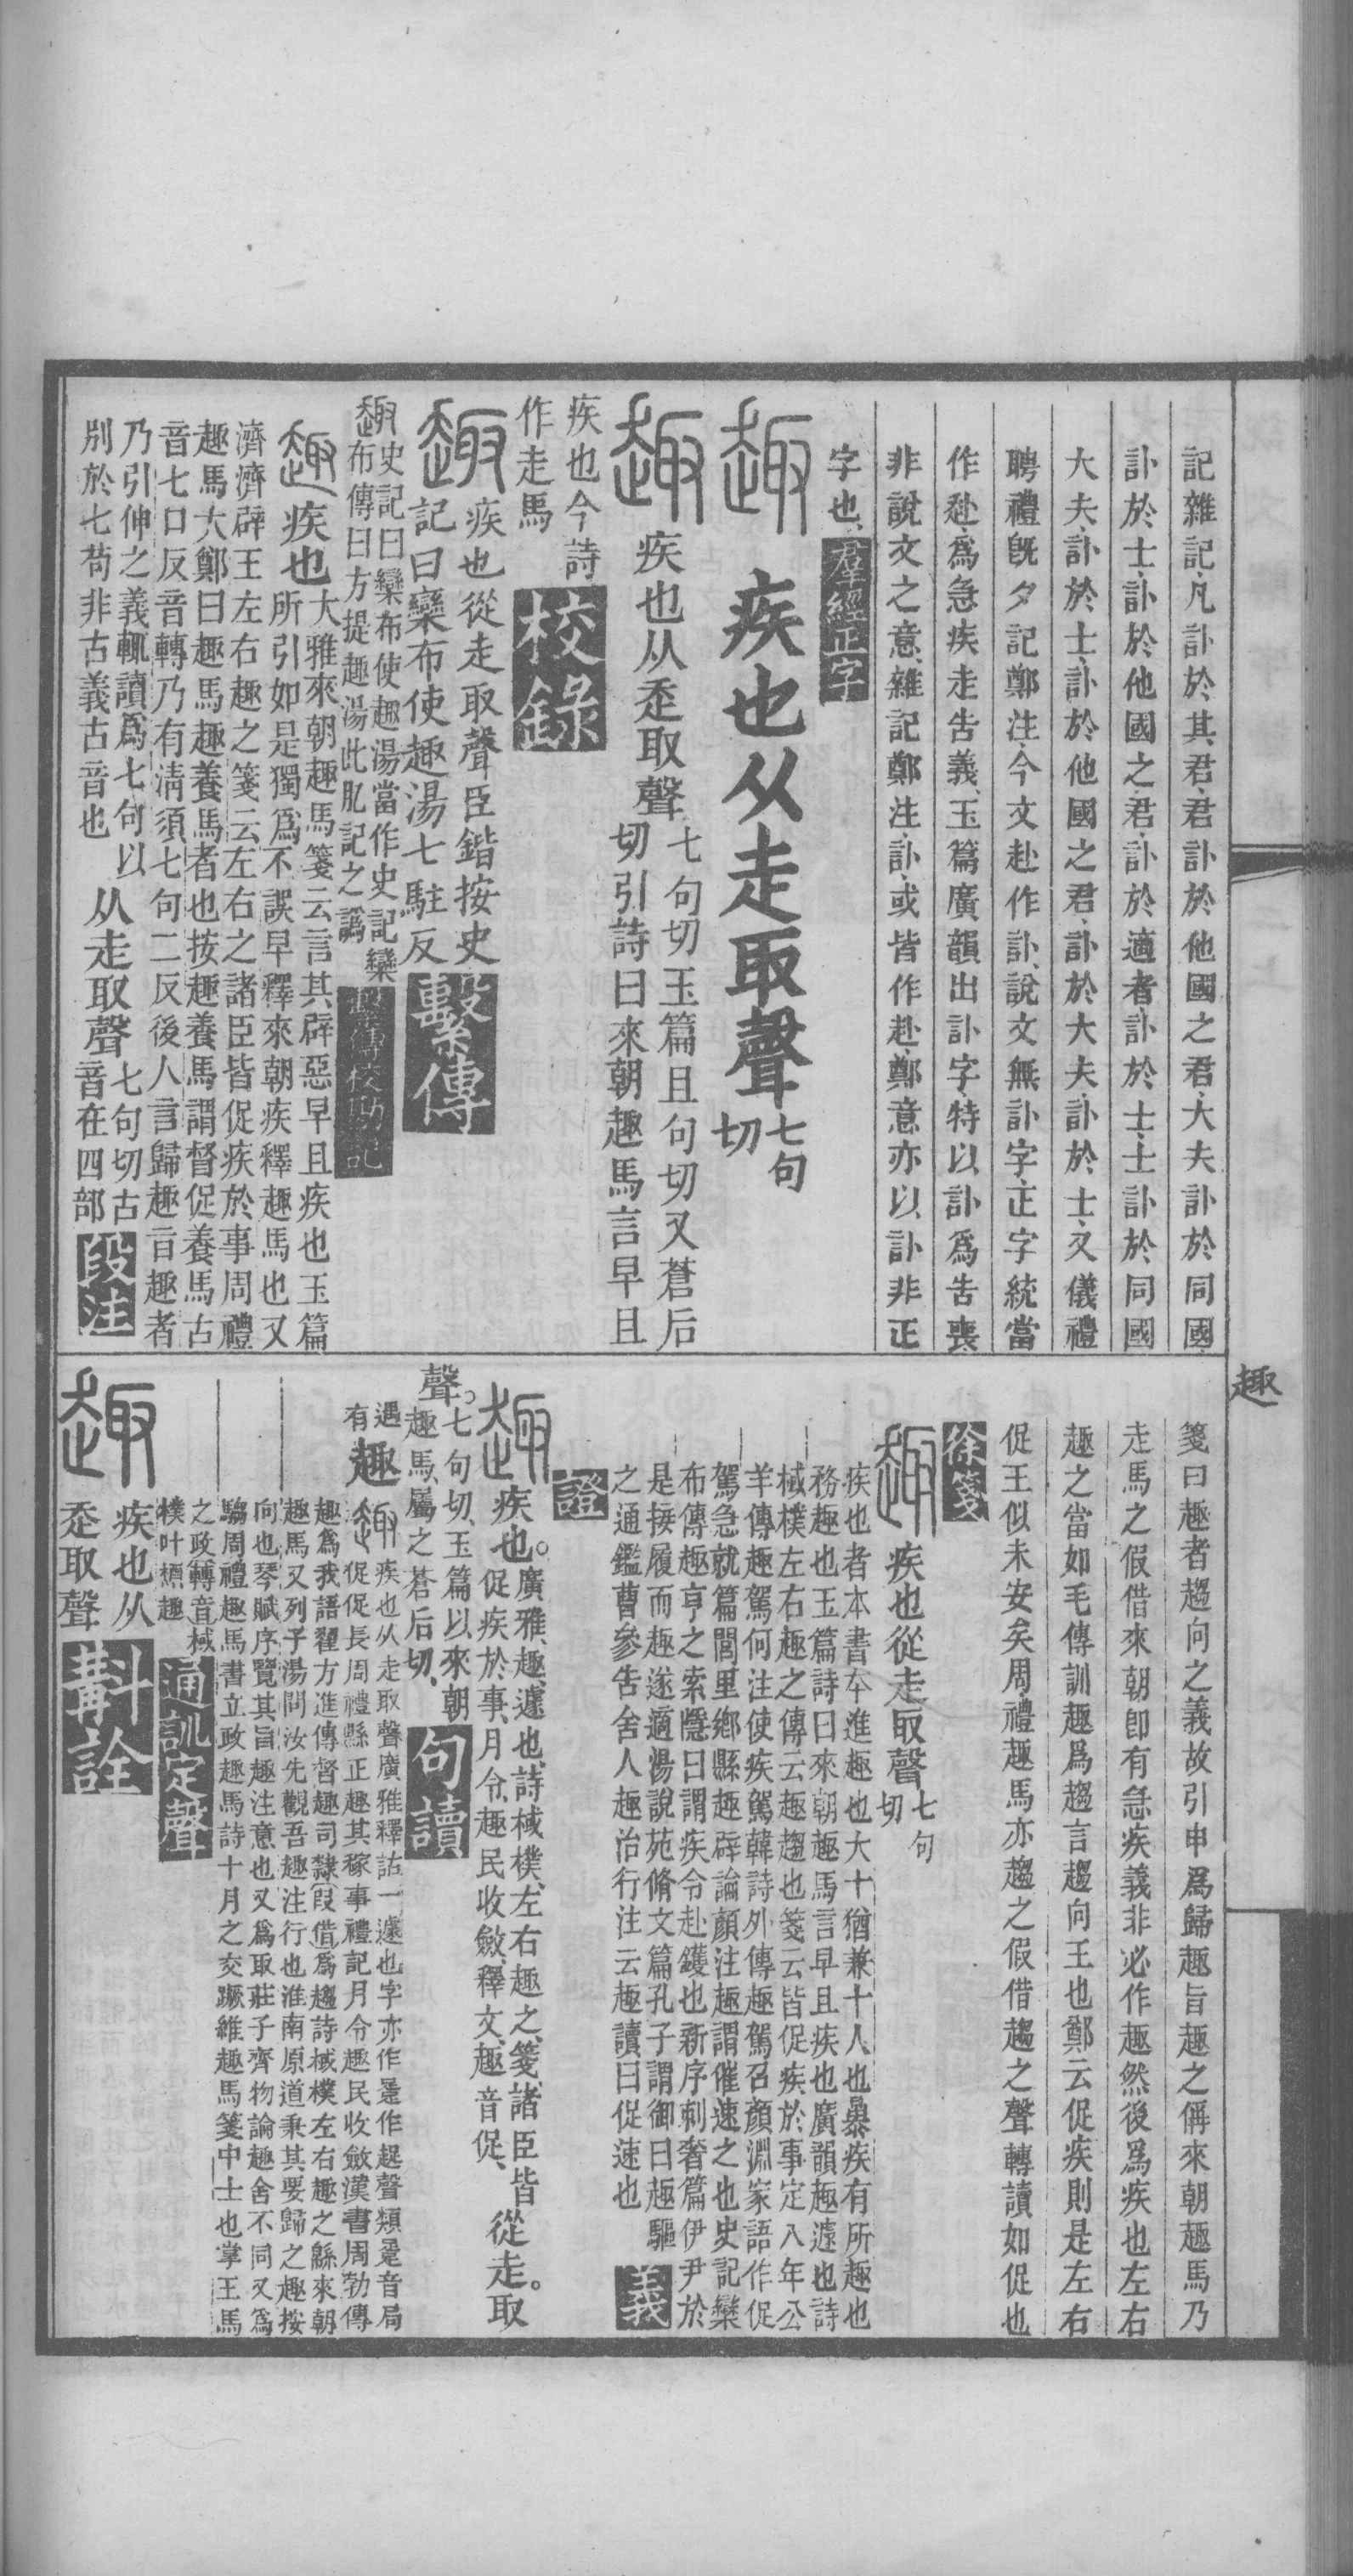 記雜記、凡訃於其君、君訃於他國之君、大夫訃於同國、
訃於士、訃於他國之君、訃於適者、訃於士、士訃於同國
大夫、訃於士、訃於他國之君、訃於大夫、訃於士、又儀禮
聘禮旣夕記鄭注、今文赴作訃、說文無訃字、正字統當
作赴、爲急疾走告義、玉篇廣韻出訃字、特以訃爲告喪
非說文之意、雜記鄭注、訃、或皆作赴、鄭意亦以訃非正
字也、羣經正字
趣 疾也从走取聲七句
切
趣 疾也从走取聲七句切玉篇且句切又蒼后
切引詩曰來朝趣馬言早且
疾也今詩
作走馬 校錄
趣 疾也從走取聲臣鍇按史
記曰欒布使趣湯七駐反 繫傳
趣史記曰欒布使趣湯當作史記欒
布傳曰方提趣湯此肊記之譌 繫傳校勘記
趣 疾也大雅來朝趣馬箋云言其辟惡早且疾也玉篇
所引如是獨爲不誤早釋來朝疾釋趣馬也又
濟濟辟王左右趣之箋云左右之諸臣皆促疾於事周禮
趣馬大鄭曰趣馬趣養馬者也按趣養馬謂督促養馬古
音七口反音轉乃有淸須七句二反後人言歸趣旨趣者
乃引伸之義輒讀爲七句以
別於七苟非古義古音也 从走取聲七句切古
音在四部 段注
趣
箋曰趣者趨向之義故引申爲歸趣旨趣之偁來朝趣馬乃
走馬之假借來朝卽有急疾義非必作趣然後爲疾也左右
趣之當如毛傳訓趣爲趨言趨向王也鄭云促疾則是左右
促王似未安矣周禮趣馬亦趨之假借趨之聲轉讀如促也
徐箋
趣 疾也從走取聲七句
切
疾也者本書夲進趣也大十猶兼十人也暴疾有所趣也
務趣也玉篇詩曰來朝趣馬言早且疾也廣韻趣遽也詩
棫樸左右趣之傳云趣趨也箋云皆促疾於事定八年公
羊傳趣駕何注使疾駕韓詩外傳趣駕召顏淵家語作促
駕急就篇閭里鄉縣趣辟論顏注趣謂催速之也史記欒
布傳趣亨之索隱曰謂疾令赴鑊也新序刺奢篇伊尹於
是接履而趣遂適湯說苑脩文篇孔子謂御曰趣驅
之通鑑曹參告舍人趣治行注云趣讀曰促速也 義
證
趣 疾也。廣雅、趣、遽也、詩棫樸、左右趣之、箋、諸臣皆
促疾於事、月令、趣民收斂、釋文、趣音促、 從走。取
聲。七句切、玉篇以來朝
趣馬、屬之蒼后切、 句讀
遇
有 趣 趣疾也从走取聲廣雅釋詁一遽也字亦作⿱作趗聲類⿱音局
促促長周禮縣正趣其稼事禮記月令趣民收斂漢書周勃傳
趣爲我語翟方進傳督趣司隸（叚借爲趨詩棫樸左右趣之緜來朝
趣馬又列子湯問汝先觀吾趣注行也淮南原道秉其要歸之趣按
向也琴賦序覽其旨趣注意也又爲取莊子齊物論趣舍不同又爲
騶周禮趣馬書立政趣馬詩十月之交蹶維趣馬箋中士也掌王馬
之政轉音棫
樸叶槱趣 通訓定聲
趣 疾也从
走取聲 斠詮